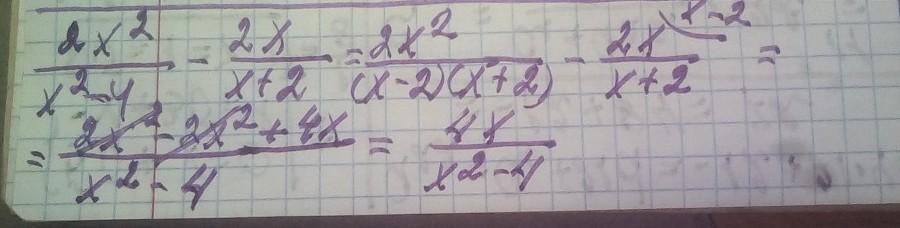 2x²/(x²-4) - 2x/(x+2) = 2x²/((x-2)(x+2)) - 2x/(x+2) ^(x-2) =
= (2x² - 2x² + 4x)/(x²-4) = 4x/(x²-4)